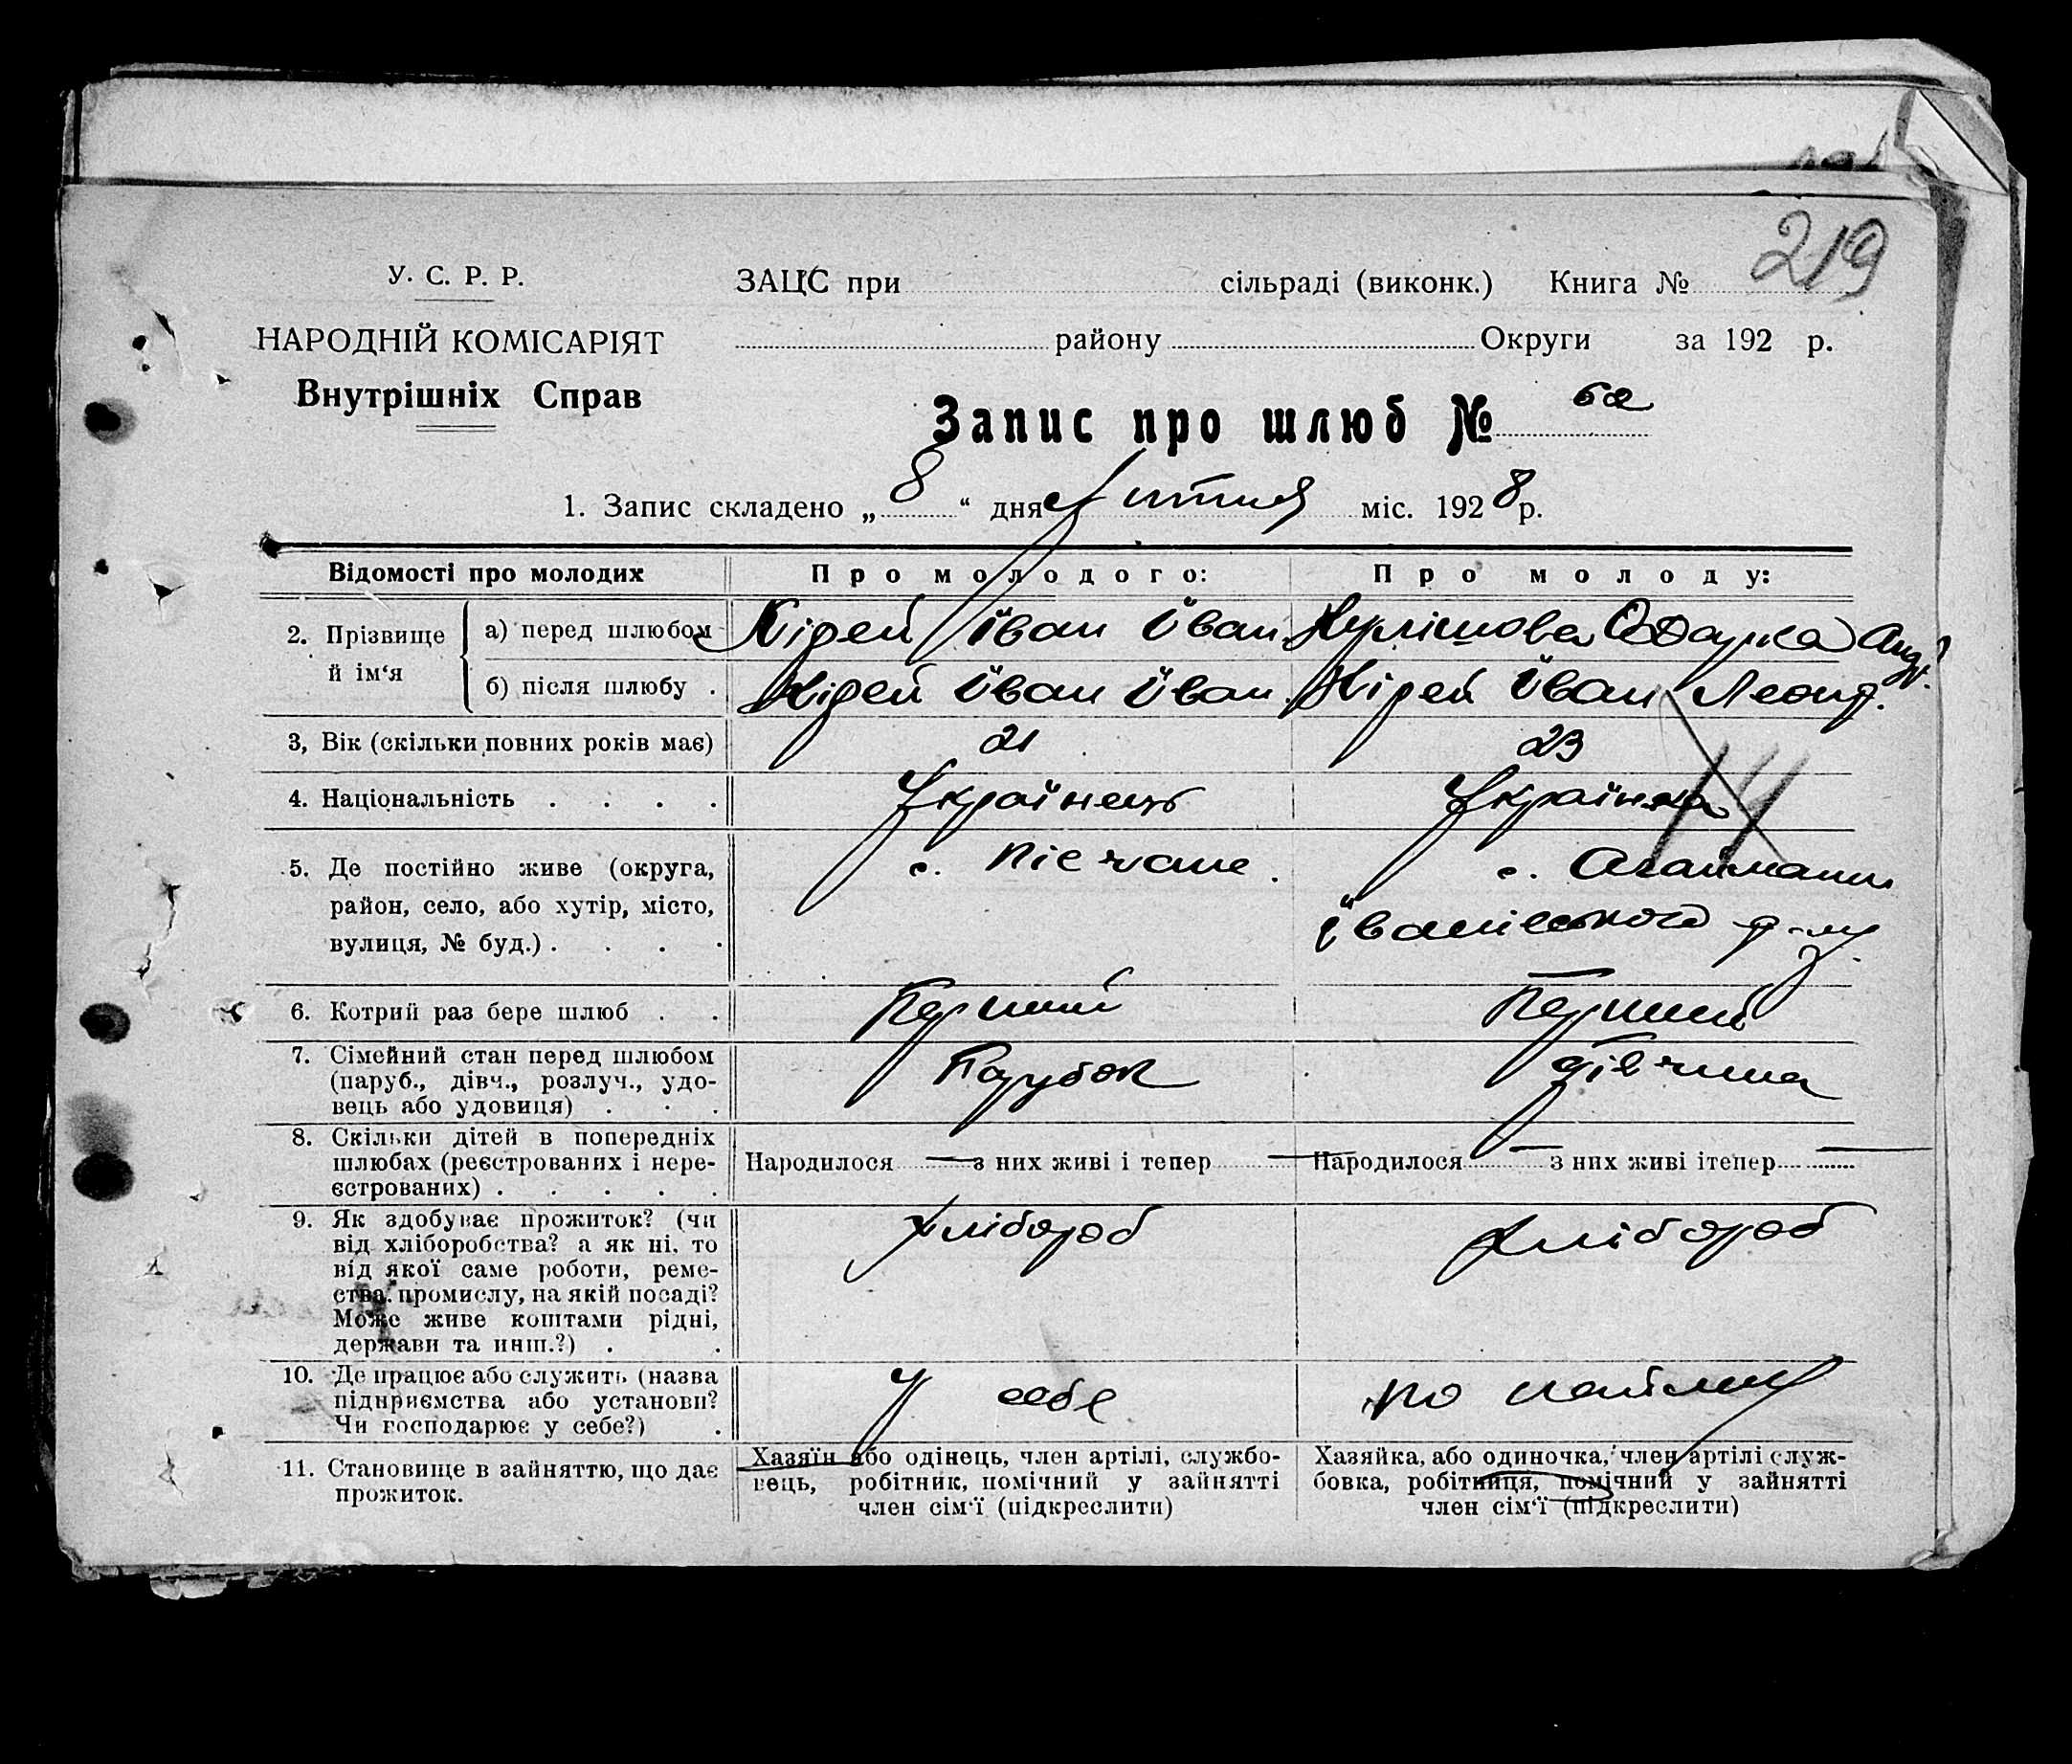 219
У. С. Р. Р.
ЗАЦС при сільраді (виконк.) Книга №
НАРОДНІЙ КОМІСАРІЯТ
району Округи за 192 р.
Внутрішніх Справ
Запис про шлюб № 62
1. Запис складено „ 8 “ дня Лютия міс. 1928 р.
Відомості про молодих
Про молодого:
Про молоду:
2. Прізвище й ім‘я
а) перед шлюбом
Кірей Іван Іван
Кулішова Одарка Андр.
б) після шлюбу .
Кірей Іван Іван.
Кірей Іван Леонд.
3, Вік (скільки повних років має)
21
23
4. Національність . . . .
Українець
Українка
5. Де постійно живе (округа,
район, село, або хутір, місто,
вулиця, № буд.) . . . .
с. Пісчане.
с. Агаймани
Іванівського р-ну.
6. Котрий раз бере шлюб . .
Перший
Перший
7. Сімейний стан перед шлюбом
(паруб., дівч., розлуч., удо-
вець або удовиця) . . .
Парубок
дівчина
8. Скільки дітей в попередніх
шлюбах (реєстрованих і нере-
єстрованих) . . . . .
Народилося — з них живі і тепер —
Народилося — з них живі ітепер —
9. Як здобуває прожиток? (чи
від хліборобства? а як ні, то
від якої саме роботи, реме-
ства, промислу, на якій посаді?
Може живе коштами рідні,
держави та инш.?) . .
Хлібороб
Хлібороб
10. Де працює або служить (назва
підприємства або установи?
Чи господарює у себе?) .
У себе
по найму
11. Становище в зайняттю, що дає
прожиток.
Хазяїн або одінець, член артілі, службо-
вець, робітник, помічний у зайнятті
член сім‘ї (підкреслити)
Хазяйка, або одиночка, член артілі служ-
бовка, робітниця, помічний у зайнятті
член сім‘ї (підкреслити)